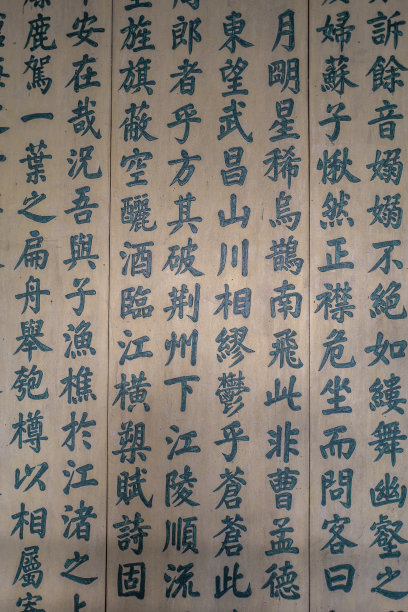 訴餘音嫋嫋不絕如縷舞幽壑之
婦蘇子愀然正襟危坐而問客曰
月明星稀烏鵲南飛此非曹孟德
東望武昌山川相繆鬱乎蒼蒼此
郎者乎方其破荆州下江陵順流
旌旗蔽空釃酒臨江橫槊賦詩固
安在哉況吾與子漁樵於江渚之
鹿駕一葉之扁舟舉匏樽以相屬